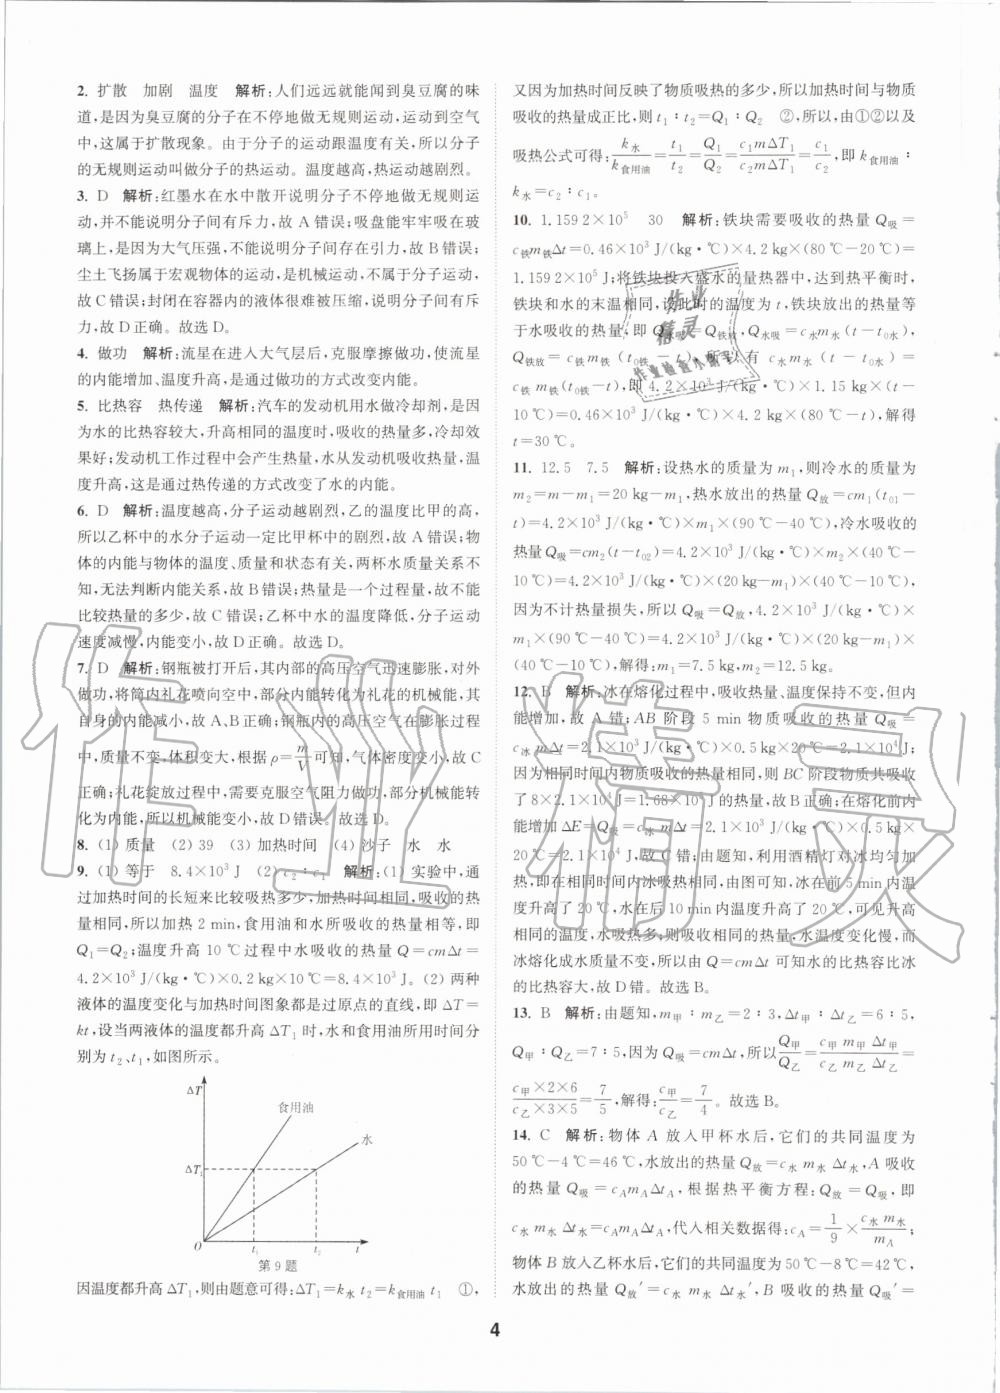 2. 扩散　加剧　温度　解析:人们远远就能闻到臭豆腐的味
道,是因为臭豆腐的分子在不停地做无规则运动,运动到空气
中,这属于扩散现象。由于分子的运动跟温度有关,所以分子
的无规则运动叫做分子的热运动。温度越高,热运动越剧烈。
3. D　解析:红墨水在水中散开说明分子不停地做无规则运
动,并不能说明分子间有斥力,故 A 错误;吸盘能牢牢吸在玻
璃上,是因为大气压强,不能说明分子间存在引力,故 B 错误;
尘土飞扬属于宏观物体的运动,是机械运动,不属于分子运动,
故 C 错误;封闭在容器内的液体很难被压缩,说明分子间有斥
力,故 D 正确。故选 D。
4. 做功　解析:流星在进入大气层后,克服摩擦做功,使流星
的内能增加、温度升高,是通过做功的方式改变内能。
5. 比热容　热传递　解析:汽车的发动机用水做冷却剂,是因
为水的比热容较大,升高相同的温度时,吸收的热量多,冷却效
果好;发动机工作过程中会产生热量,水从发动机吸收热量,温
度升高,这是通过热传递的方式改变了水的内能。
6. D　解析:温度越高,分子运动越剧烈,乙的温度比甲的高,
所以乙杯中的水分子运动一定比甲杯中的剧烈,故 A 错误;物
体的内能与物体的温度、质量和状态有关,两杯水质量关系不
知,无法判断内能关系,故 B 错误;热量是一个过程量,故不能
比较热量的多少,故 C 错误;乙杯中水的温度降低,分子运动
速度减慢,内能变小,故 D 正确。故选 D。
7. D　解析:钢瓶被打开后,其内部的高压空气迅速膨胀,对外
做功,将筒内礼花喷向空中,部分内能转化为礼花的机械能,其
自身的内能减小,故 A、B 正确;钢瓶内的高压空气在膨胀过程
中,质量不变,体积变大,根据 ρ=m/V 可知,气体密度变小,故 C
正确;礼花绽放过程中,需要克服空气阻力做功,部分机械能转
化为内能,所以机械能变小,故 D 错误。故选 D。
8. (1) 质量　(2) 39　(3) 加热时间　(4) 沙子　水　水
9. (1) 等于　8.4×10³ J　(2) c₂∶c₁　解析:(1) 实验中,通过
加热时间的长短来比较吸热多少,加热时间相同,吸收的热
量相同,所以加热 2 min,食用油和水所吸收的热量相等,即
Q₁=Q₂;温度升高 10 ℃过程中水吸收的热量 Q=cmΔt=
4.2×10³ J/(kg·℃)×0.2 kg×10 ℃=8.4×10³ J。(2) 两种
液体的温度变化与加热时间图象都是过原点的直线,即 ΔT=
kt,设当两液体的温度都升高 ΔT₁ 时,水和食用油所用时间分
别为 t₂、t₁,如图所示。
ΔT
食用油
水
ΔT₁
O　t₁　t₂　t
第 9 题
因温度都升高 ΔT₁,则由题意可得:ΔT₁=k水 t₂=k食用油 t₁　①,
又因为加热时间反映了物质吸热的多少,所以加热时间与物质
吸收的热量成正比,则 t₁∶t₂=Q₁∶Q₂　②,所以,由①②以及
吸热公式可得:k水/k食用油=t₁/t₂=Q₁/Q₂=c₁mΔT₁/c₂mΔT₁=c₁/c₂,即 k食用油∶
k水=c₂∶c₁。
10. 1.159 2×10⁵　30　解析:铁块需要吸收的热量 Q吸=
c铁m铁Δt=0.46×10³ J/(kg·℃)×4.2 kg×(80 ℃-20 ℃)=
1.159 2×10⁵ J;将铁块投入盛水的量热器中,达到热平衡时,
铁块和水的末温相同,设此时的温度为 t,铁块放出的热量等
于水吸收的热量,即 Q水吸=Q铁放,Q水吸=c水m水(t-t0水),
Q铁放=c铁m铁(t0铁-t),所以有 c水m水(t-t0水)=
c铁m铁(t0铁-t),即 4.2×10³ J/(kg·℃)×1.15 kg×(t-
10 ℃)=0.46×10³ J/(kg·℃)×4.2 kg×(80 ℃-t),解得
t=30 ℃。
11. 12.5　7.5　解析:设热水的质量为 m₁,则冷水的质量为
m₂=m-m₁=20 kg-m₁,热水放出的热量 Q放=cm₁(t₀₁-
t)=4.2×10³ J/(kg·℃)×m₁×(90 ℃-40 ℃),冷水吸收的
热量Q吸=cm₂(t-t₀₂)=4.2×10³ J/(kg·℃)×m₂×(40 ℃-
10 ℃)=4.2×10³ J/(kg·℃)×(20 kg-m₁)×(40 ℃-10 ℃),
因为不计热量损失,所以 Q吸=Q放,4.2×10³ J/(kg·℃)×
m₁×(90 ℃-40 ℃)=4.2×10³ J/(kg·℃)×(20 kg-m₁)×
(40 ℃-10 ℃),解得:m₁=7.5 kg,m₂=12.5 kg。
12. B　解析:冰在熔化过程中,吸收热量、温度保持不变,但内
能增加,故 A 错;AB 阶段 5 min 物质吸收的热量 Q吸=
c冰 mΔt=2.1×10³ J/(kg·℃)×0.5 kg×20 ℃=2.1×10⁴ J;
因为相同时间内物质吸收的热量相同,则 BC 阶段物质共吸收
了 8×2.1×10⁴ J=1.68×10⁵ J的热量,故 B 正确;在熔化前内
能增加 ΔE=Q吸=c冰 mΔt=2.1×10³ J/(kg·℃)×0.5 kg×
20 ℃=2.1×10⁴ J,故 C 错;由题知,利用酒精灯对冰均匀加
热,即在相同时间内冰吸热相同,由图可知,冰在前 5 min 内温
度升高了 20 ℃,水在后 10 min 内温度升高了 20 ℃,可见升高
相同的温度,水吸热多;则吸收相同的热量,水温度变化慢,而
冰熔化成水质量不变,所以由 Q=cmΔt 可知水的比热容比冰
的比热容大,故 D 错。故选 B。
13. B　解析:由题知,m甲∶m乙=2∶3,Δt甲∶Δt乙=6∶5,
Q甲∶Q乙=7∶5,因为 Q吸=cmΔt,所以Q甲/Q乙=c甲 m甲 Δt甲/c乙 m乙 Δt乙=
c甲×2×6/c乙×3×5=7/5,解得:c甲/c乙=7/4。故选 B。
14. C　解析:物体 A 放入甲杯水后,它们的共同温度为
50 ℃-4 ℃=46 ℃,水放出的热量 Q放=c水 m水 Δt水,A 吸收
的热量 Q吸=cAmAΔtA,根据热平衡方程:Q放=Q吸,即
c水 m水 Δt水=cAmAΔtA,代入相关数据得:cA=1/9×c水 m水/mA;
物体 B 放入乙杯水后,它们的共同温度为 50 ℃-8 ℃=42 ℃,
水放出的热量 Q放′=c水 m水 Δt水′,B 吸收的热量 Q吸′=
4
作业精灵
作业精灵
作业检查小帮手